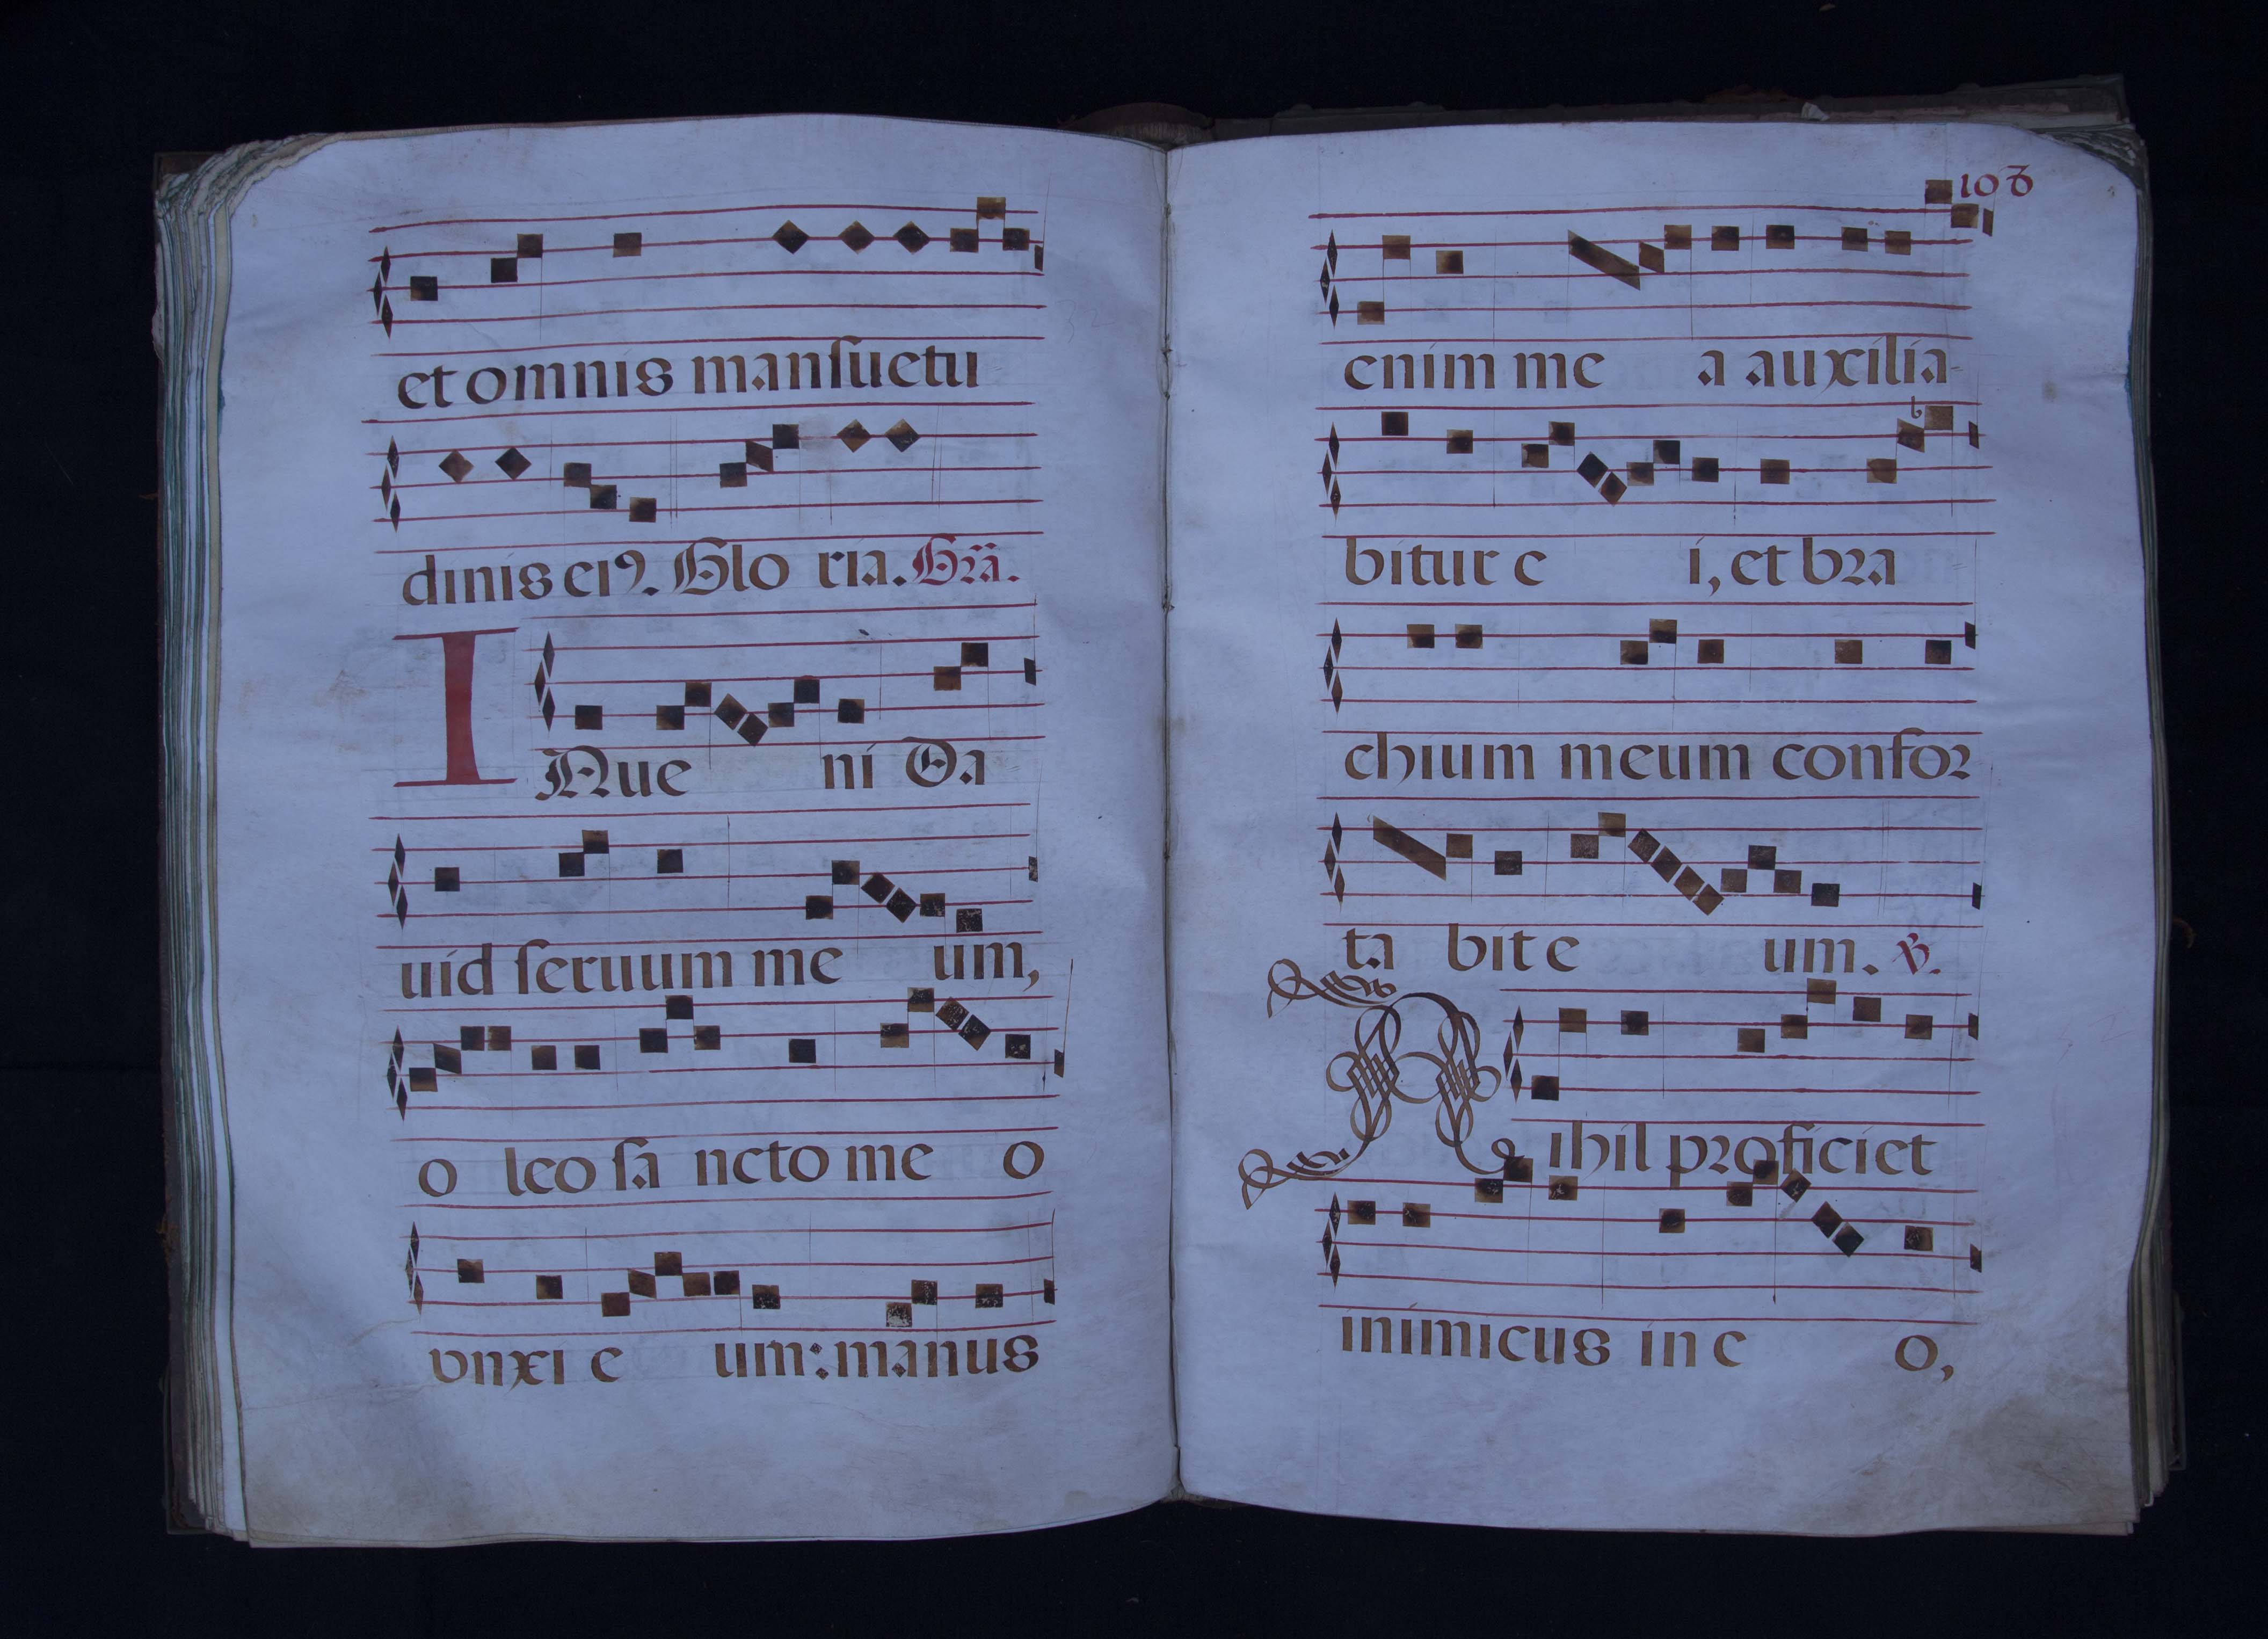 et omnis manſuetu
dinis ei9. Glo ria. Gra.
I Nue ni Da
uid ſeruum me um,
o leo ſa ncto me o
vnxi e um: manus
108
enim me a auxilia-
bitur e i, et bra
chium meum confor
ta bit e um. V.
N ihil proficiet
inimicus in e o,